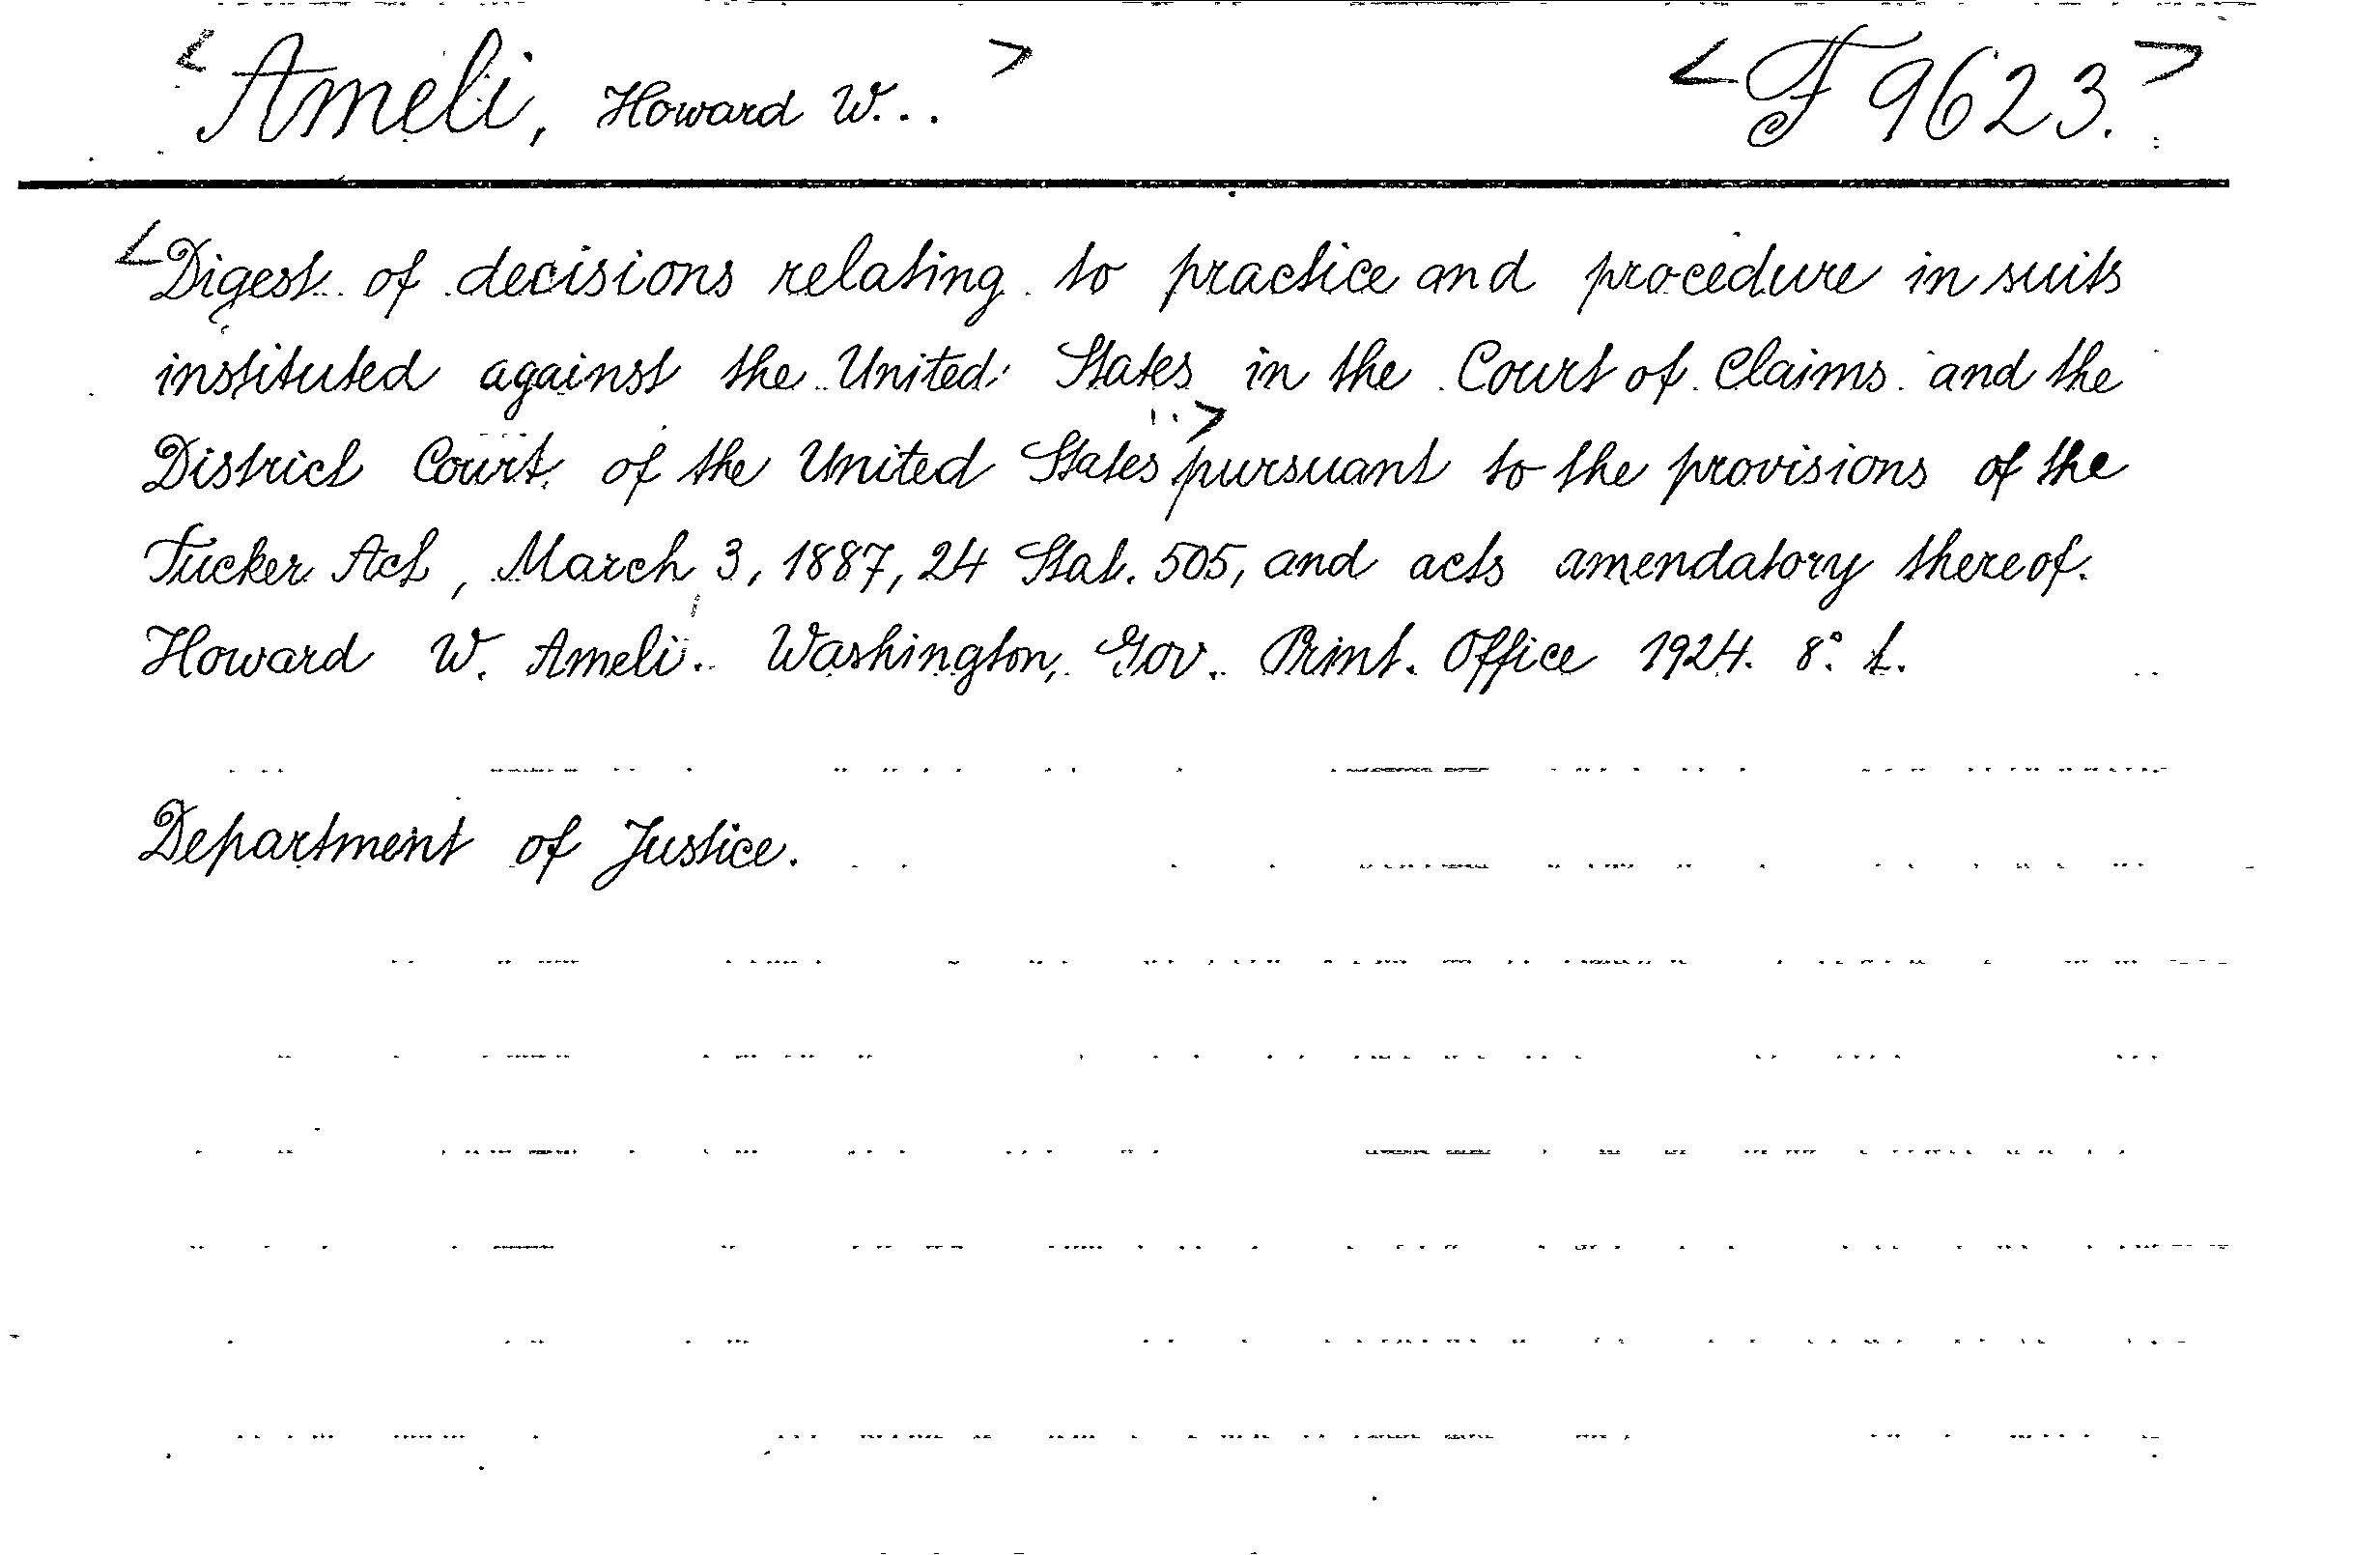 <Ameli, Howard W...> <F 9623.>
<Digest of decisions relating to practice and procedure in suits
instituted against the United States in the Court of Claims and the
District Court of the United States> pursuant to the provisions of the
Tucker Act, March 3, 1887, 24 Stat. 505, and acts amendatory thereof.
Howard W. Ameli. Washington, Gov. Print. Office 1924. 8° t.
Department of Justice.